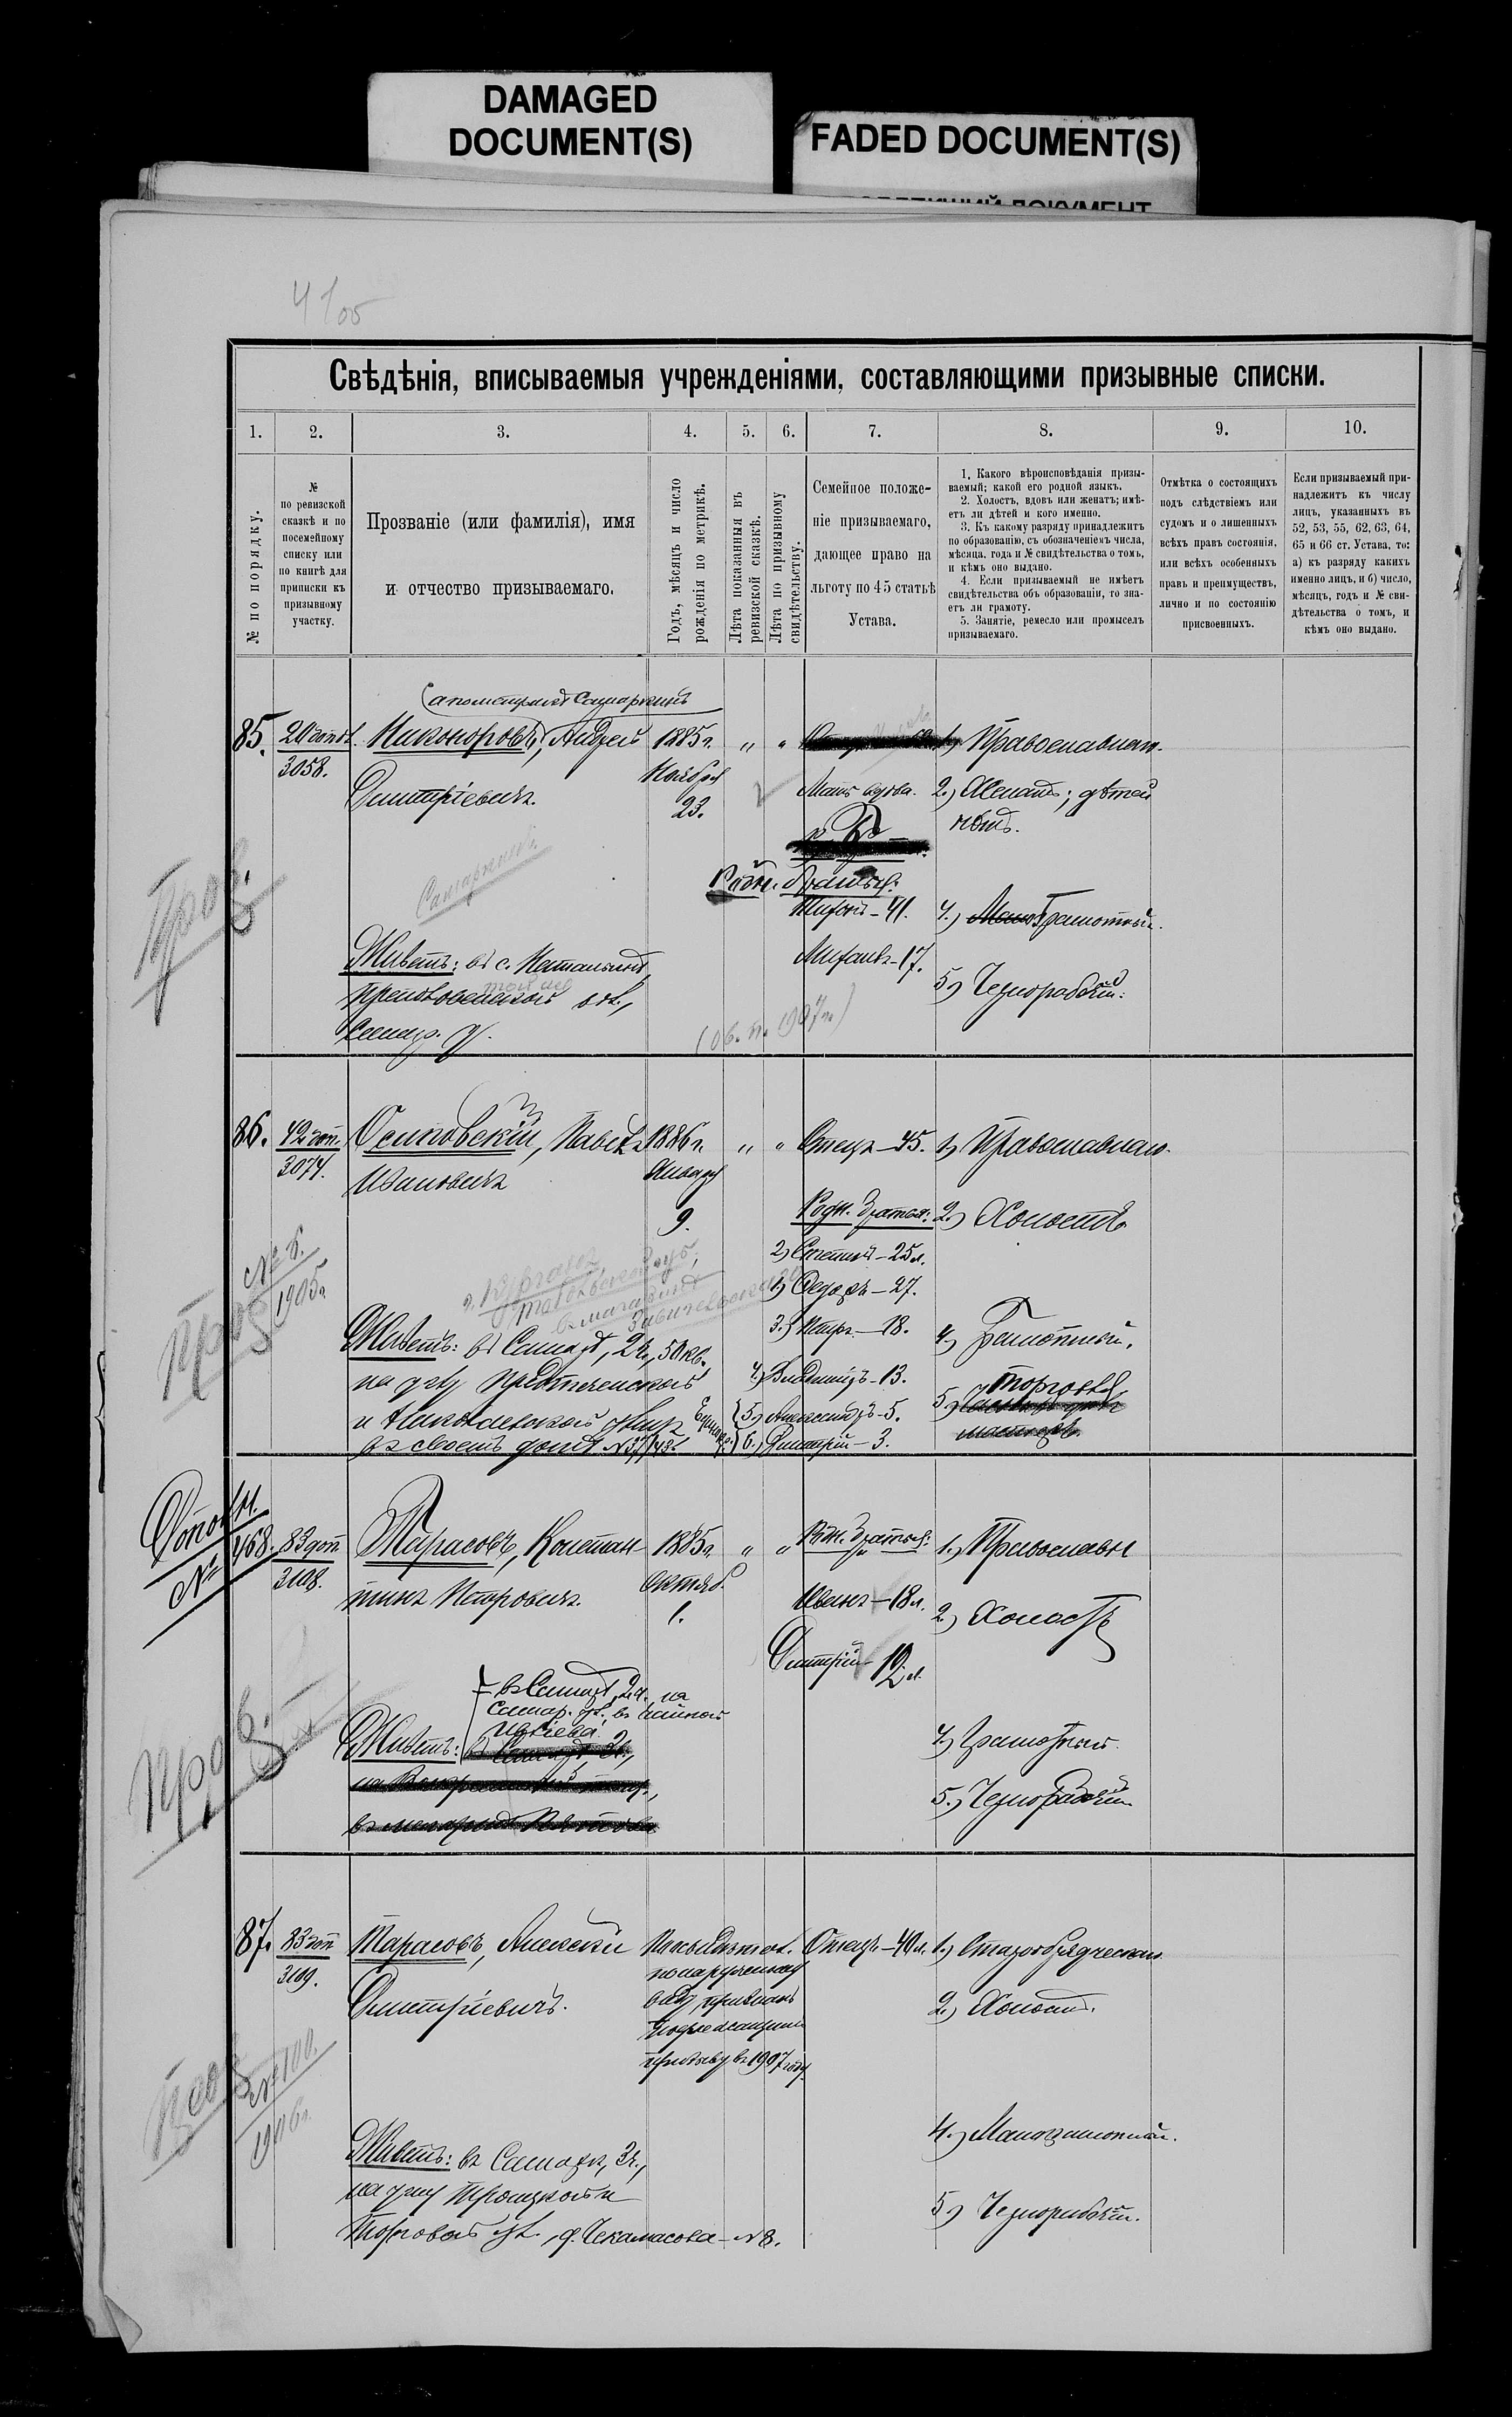 DAMAGED
DOCUMENT(S)
FADED DOCUMENT(S)
Свѣдѣнія, вписываемыя учрежденіями, составляющими призывные списки.
1. 2. 3. 4. 5. 6. 7. 8. 9. 10.
№ по порядку.
№
по ревизской
сказкѣ и по
посемейному
списку или
по книгѣ для
приписки къ
призывному
участку.
Прозваніе (или фамилія), имя
и отчество призываемаго.
Годъ, мѣсяцъ и число
рожденія по метрикѣ.
Лѣта показанныя въ
ревизской сказкѣ.
Лѣта по призывному
свидѣтельству.
Семейное положе-
ніе призываемаго,
дающее право на
льготу по 45 статьѣ
Устава.
1. Какого вѣроисповѣданія призы-
ваемый; какой его родной языкъ.
2. Холостъ, вдовъ или женатъ; имѣ-
етъ ли дѣтей и кого именно.
3. Къ какому разряду принадлежитъ
по образованію, съ обозначеніемъ числа,
мѣсяца, года и № свидѣтельства о томъ,
и кѣмъ оно выдано.
4. Если призываемый не имѣетъ
свидѣтельства объ образованіи, то зна-
етъ ли грамоту.
5. Занятіе, ремесло или промыселъ
призываемаго.
Отмѣтка о состоящихъ
подъ слѣдствіемъ или
судомъ и о лишенныхъ
всѣхъ правъ состоянія,
или всѣхъ особенныхъ
правъ и преимуществъ,
лично и по состоянію
присвоенныхъ.
Если призываемый при-
надлежитъ къ числу
лицъ, указанныхъ въ
52, 53, 55, 62, 63, 64,
65 и 66 ст. Устава, то:
а) къ разряду какихъ
именно лицъ, и б) число,
мѣсяцъ, годъ и № сви-
дѣтельства о томъ, и
кѣмъ оно выдано.
85.
3058.
Никоноровъ, Андрей
Дмитріевичъ.
1885 г.
Ноября
23.
" "
Мать вдова.
Родн. братья:
41.
Михаилъ - 17.
1) Православнаго.
2) Женатъ; дѣтей
нѣтъ.
4.) Грамотный.
5) Чернорабочій.
Живетъ: въ с.
(Ов. п. 1907 г.)
86.
42 доп.
3074.
Осиповскій, Павелъ
Ивановичъ
1886 г.
Января
9.
" "
Отецъ - 45.
Родн. братья:
2) Степанъ - 25 л.
1) Федоръ - 27.
3.) Петръ - 18.
4.) Владиміръ - 13.
5.) Александръ - 5.
6.) Дмитрій - 3.
1) Православнаго.
2.) Холостъ
4) Грамотный.
5) торговля
№ 6.
1905 г.
г. Курганъ,
Живетъ: въ Самарѣ, 2 ч., 50 кв.
на углу Предтеченской
и Николаевской улицъ
въ своемъ домѣ № 37/43.
№ 468.
83 доп.
3108.
Тарасовъ, Констан-
тинъ Петровичъ.
1885 г.
Октяб.
1.
" "
Родн. братья:
18 л.
Дмитрій - 12 л.
1.) Православн
2.) Холостъ
4.) Грамотный.
5.) Чернорабочій.
въ Самарѣ, 2 ч., на
Самар. ул., въ чайной
Живетъ:
87.
83 доп
3109.
Тарасовъ, Алексѣй
Дмитріевичъ.
по наружному
виду, признанъ
подлежащимъ
призыву въ 1907 году.
Отецъ - 40 л.
1.) Старообрядческаго
2.) Холостъ.
4.) Малограмотный.
5.) Чернорабочій.
№ 100.
1906 г.
Живетъ: въ Самарѣ, 3 ч.,
на углу Троицкой и
Торговой ул., д. Чекамасова - № 8.